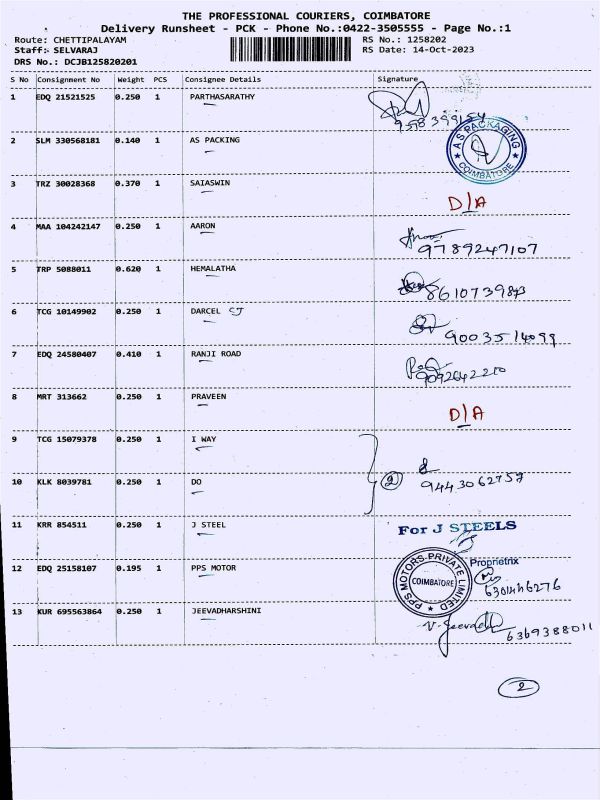 THE PROFESSIONAL COURIERS, COIMBATORE
Delivery Runsheet - PCK - Phone No.:0422-3505555 - Page No.:1
Route: CHETTIPALAYAM RS No.: 1258202
Staff: SELVARAJ RS Date: 14-Oct-2023
DRS No.: DCJB125820201
S No Consignment No Weight PCS Consignee Details Signature
1 EDQ 21521525 0.250 1 PARTHASARATHY
2 SLM 330568181 0.140 1 AS PACKING
AS PACKAGING
COIMBATORE
3 TRZ 30028368 0.370 1 SAIASWIN D/A
4 MAA 104242147 0.250 1 AARON 9789247107
5 TRP 5088011 0.620 1 HEMALATHA
6 TCG 10149902 0.250 1 DARCEL
7 EDQ 24580407 0.410 1 RANJI ROAD
8 MRT 313662 0.250 1 PRAVEEN D/A
9 TCG 15079378 0.250 1 I WAY
10 KLK 8039781 0.250 1 DO 2 9443062757
11 KRR 854511 0.250 1 J STEEL For J STEELS
Proprietrix
12 EDQ 25158107 0.195 1 PPS MOTOR
PPS MOTORS PRIVATE LIMITED
COIMBATORE
13 KUR 695563864 0.250 1 JEEVADHARSHINI 6369388011
2